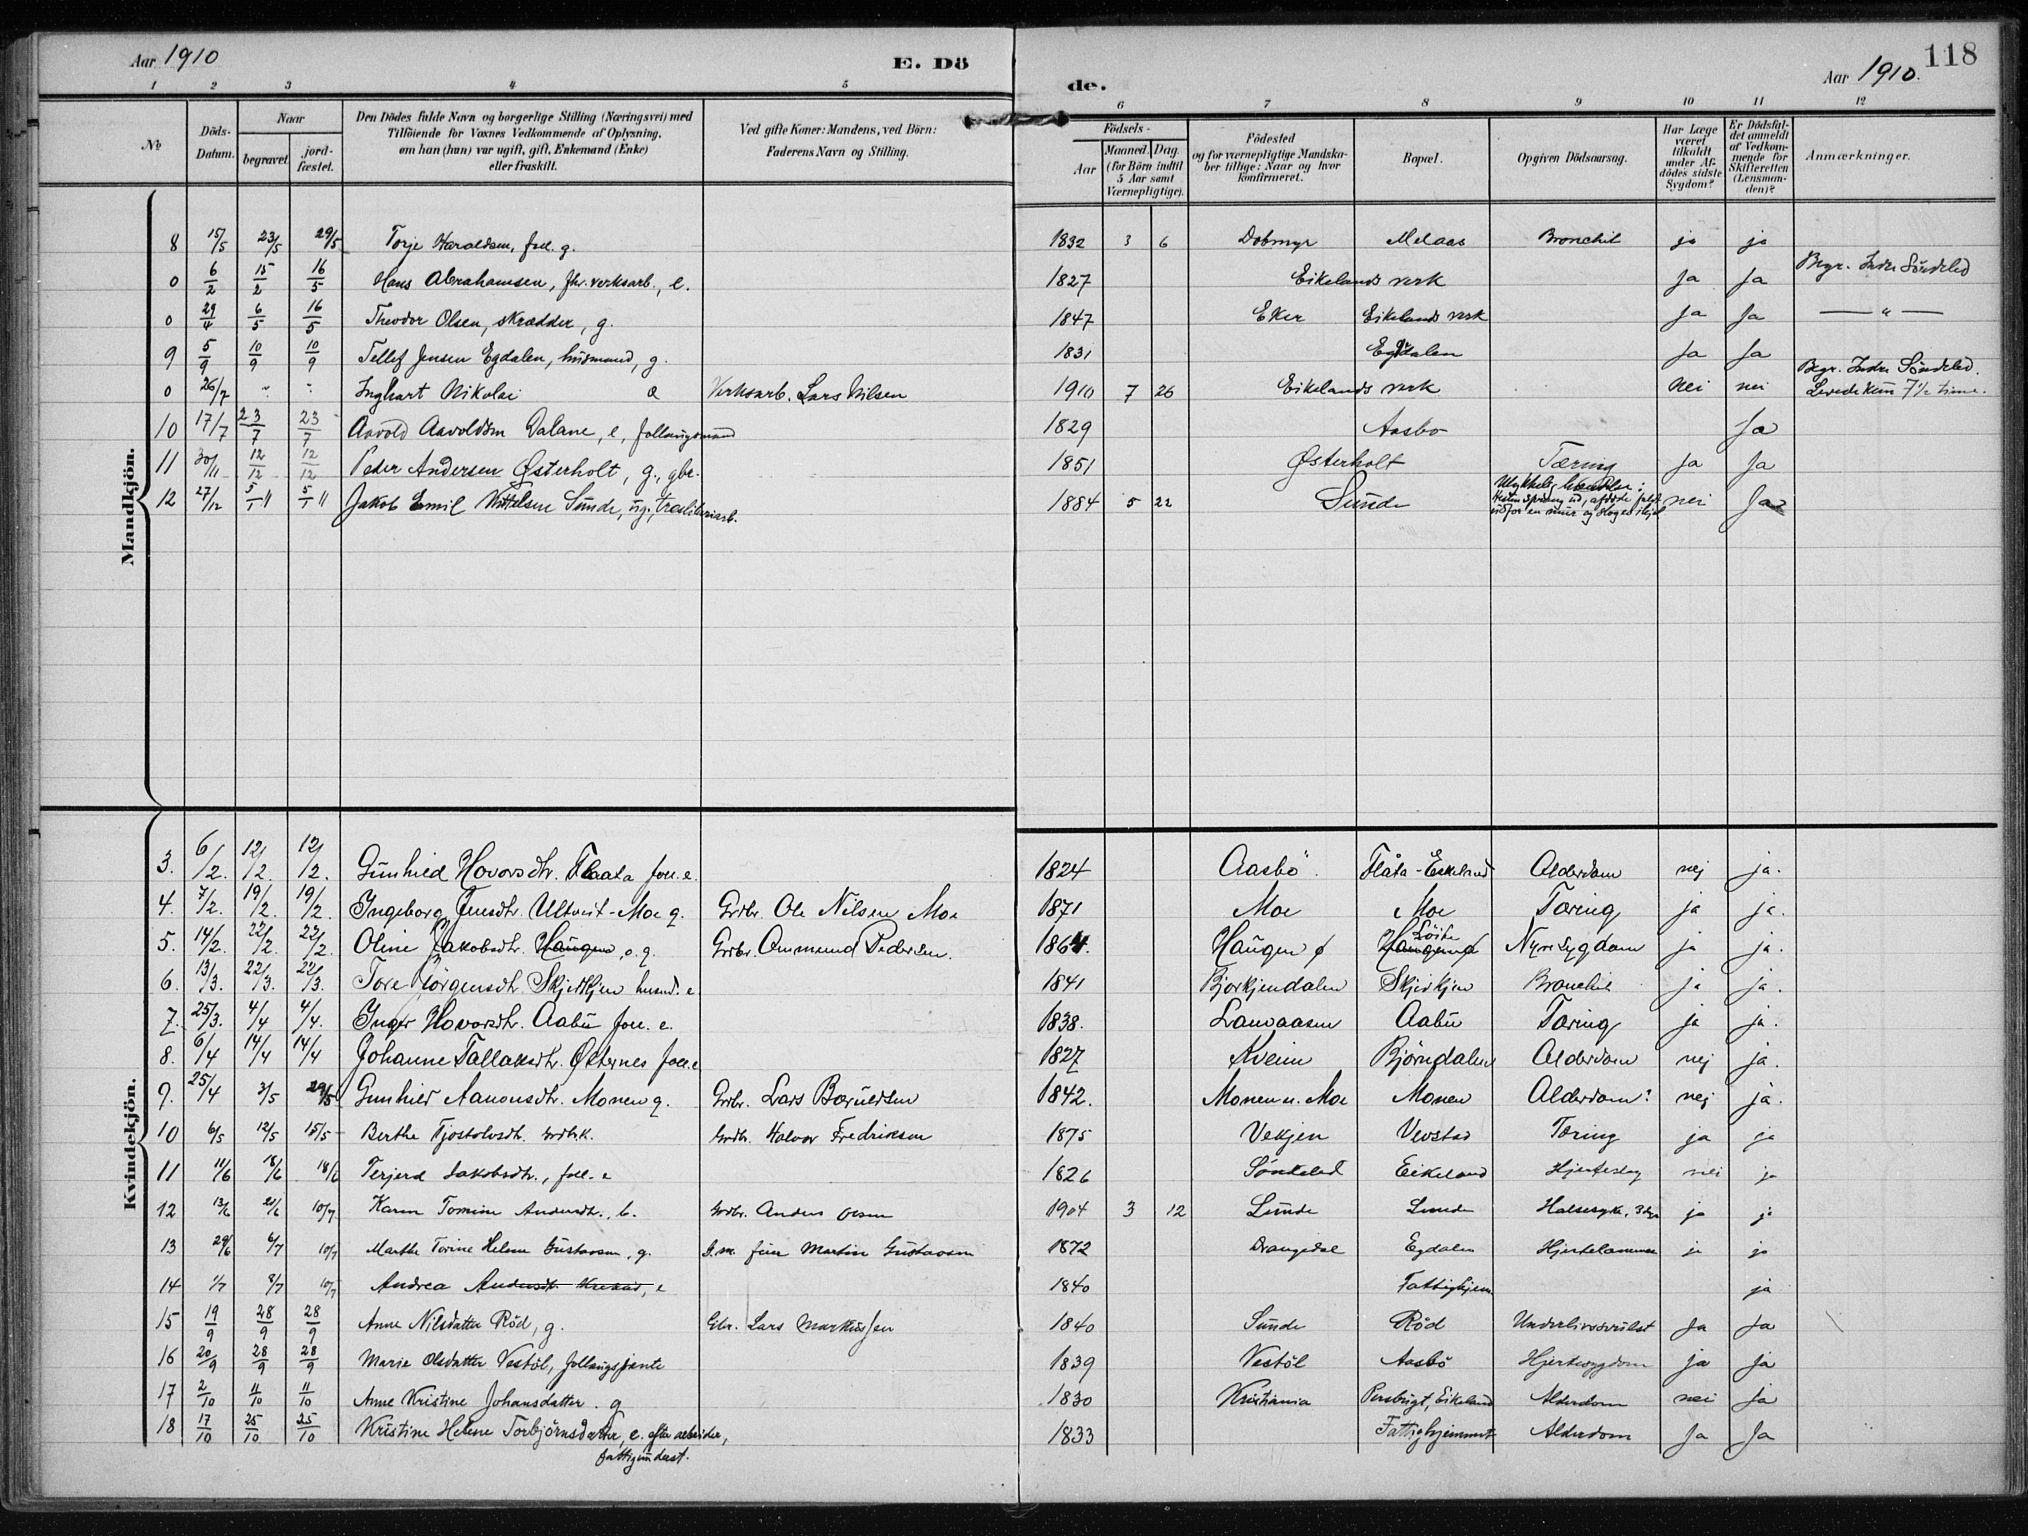 Aar 1910
E. Dö
de.
Aar 1910.
118
1 2 3 4 5 6 7 8 9 10 11 12
No
Döds-Datum.
Naar
begravet.
jord-fæstet.
Den Dödes fulde Navn og borgerlige Stilling (Næringsvei) med
Tilföiende for Voxnes Vedkommende af Oplysning,
om han (hun) var ugift, gift, Enkemand (Enke)
eller fraskilt.
Ved gifte Koner: Mandens, ved Börn:
Faderens Navn og Stilling.
Födsels-
Aar
Maaned. Dag.
(for Börn indtil
5 Aar samt
Værnepligtige).
Födested
og for værnepligtige Mandska-
ber tillige: Naar og hvor
konfirmeret.
Bopæl.
Opgiven Dödsaarsag.
Har Læge
været
tilkaldt
under Af-
dödes sidste
Sygdom?
Er Dödsfal-
det anmeldt
af Vedkom-
mende for
Skifteretten
(Lensman-
den)?
Anmærkninger.
Mandkjön.
8 15/5 23/5 29/5 Torje Haraldsen, foll. g. 1832 3 6 Dobmyr Melaas Bronchit ja ja
0 6/2 15/2 16/5 Hans Abrahamsen, fhv. verksarb., e. 1827 Eikelands verk Ja Ja Begr. Indre Söndeled
0 29/4 6/5 16/5 Theodor Olsen, skrædder, g. 1847 Eker Eikelands verk Ja Ja — " —
9 5/9 10/9 10/9 Tellef Jensen Egdalen, husmand, g. 1831 Egdalen Ja Ja
0 26/7 " " Inghart Nikolai Verksarb. Lars Nilsen 1910 7 26 Eikelands verk nei nei Begr. Indre Söndeled.
Levede kun 7 1/2 time.
10 17/7 23/7 23/7 Aavold Aavoldsen Dalane, e, follaugsmand 1829 Aasbo Ja
11 30/11 12/12 12/12 Peder Andersen Østerholt, g., gbr. 1851 Østerholt Tæring Ja Ja
12 27/12 5/1 11 5/1 11 Jakob Emil Sunde, ug., 1884 5 22 Sunde nei Ja
Kvindekjön.
3. 6/2. 12/2. 12/2. Gunhild Hovorsdtr. Flaata foll. e. 1824 Aasbö Flåta-Eskeland Alderdom nej ja.
4. 7/2. 19/2. 19/2. Ingeborg Jensdtr. Ultveit-Moe g. Grdbr. Ole Nilsen Moe 1871 Moe Moe Tæring ja ja.
5. 14/2. 22/2. 22/2. Oline Jakobsdtr. Haugen, g. Grdbr. Ommund Pedersen. 1864. Haugen Haugen Nyresygdom ja ja.
6. 13/3. 22/3. 22/3. Tore Jörgensdtr. Skjerkjen husmd. e. 1841 Bjorkjendalen Skjerkjen Bronchit ja ja.
7. 25/3. 4/4 4/4. Inger Hovorsdtr. Aabu foll. e. 1838. Lauvaasen Aabu Tæring ja ja.
8. 6/4 14/4 14/4 Johanne Tallaksdtr. Østernes foll. e 1827 Kveim Björndalen Alderdom nej ja.
9. 25/4 3/5 29/5 Gunhild Aanonsdtr. Monen g. Grdbr. Lars Baruldsen 1842. Monen u. Moe Monen Alderdom? nej ja.
10 6/5 12/5 15/5 Berthe Tjostolvsdtr. Grdbrk. Grdbr. Halvor Fredriksen 1875 Vekjen Vevstad Tæring ja ja
11 11/6 18/6 18/6 Terjerd Jakobsdtr., foll. e 1826 Söndeled Eikeland Hjerteslag nei ja
12 13/6 21/6 10/7 Karen Tomine Andersdtr., b. Grdbr. Anders Olsen 1904 3 12 Lunde Lunde Halsesyke, 3 dage ja ja
13 29/6 6/7 10/7 Marthe Torine Helene Gustavsen, g. Martin Gustavsen 1872 Drangedal Egdalen Hjertelammelse ja ja
14 1/7 8/7 10/7 Andrea Andersdtr. e 1840 Fattighjem. ja
15 19/9 28/9 28/9 Anne Nilsdatter Röd, g. Gbr. Lars Markussen 1840 Sunde Röd Underlivssvulst Ja Ja
16 20/9 28/9 28/9 Marie Olsdatter Vestöl, follaugsjente 1839 Vestöl Aasbö Hjertesygdom ja ja
17 2/10 11/10 11/10 Anne Kristine Johansdatter. g 1830 Kristiania Persbrygt, Eikeland Alderdom nei Ja
18 17/10 25/10 25/10 Kristine Helene Torbjörnsdatter, e. efter arbeider,
fattigunderst. 1833 Fattighjemmet Alderdom Ja Ja